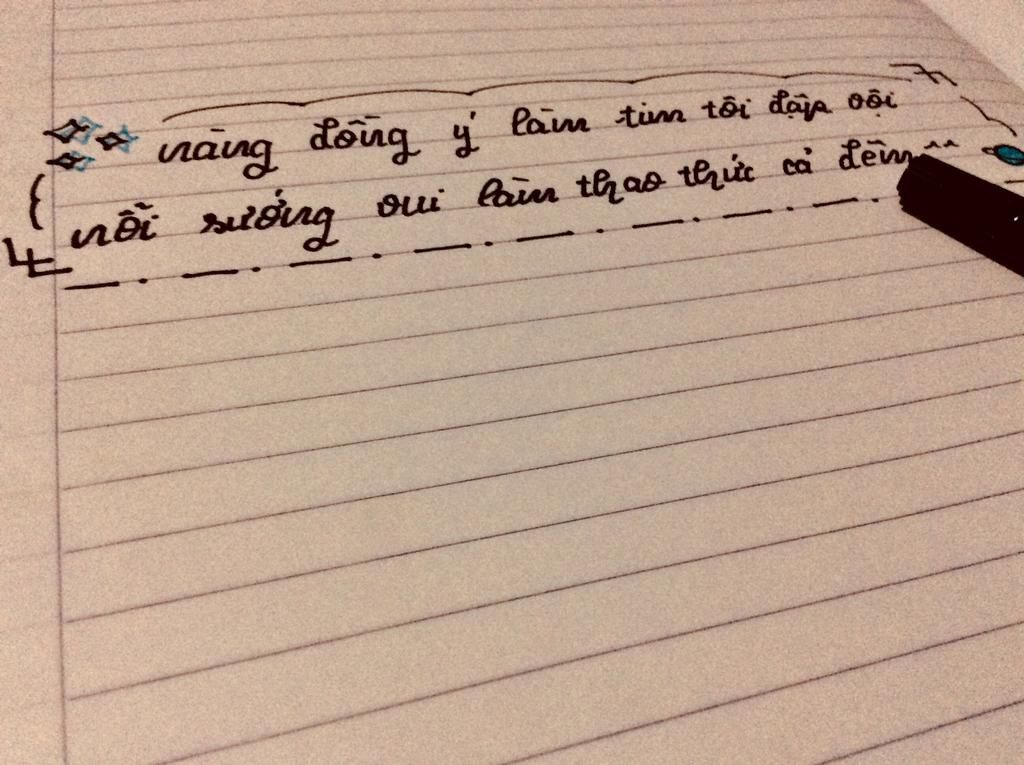 nàng đồng ý làm tim tôi đập vội
nỗi sướng vui làm thao thức cả đêm ^^